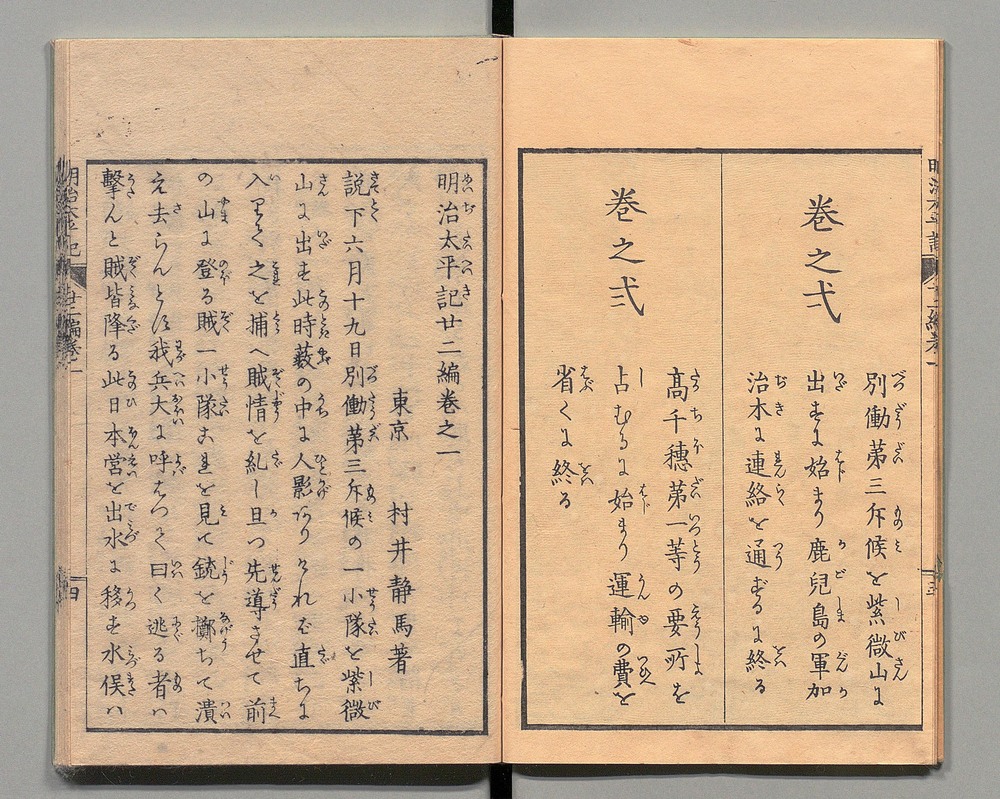 巻之弌
別働第三斥候を紫微山に
出すに始まり鹿兒島の軍加
治木に連絡を通ずるに終る
巻之弐
高千穗第一等の要所を
占むるに始まり運輸の費を
省くに終る
明治太平記廿二編巻之一
東京　村井静馬著
説下六月十九日別働第三斥候の一小隊を紫微
山に出す此時薮の中に人影ありければ直ちに
入りて之を捕へ賊情を糺し且つ先導させて前
の山に登る賊一小隊これを見て銃を擲ちて潰
え去らんとす我兵大に呼はつて曰く逃る者ハ
撃んと賊皆降る此日本営を出水に移す水俣ハ